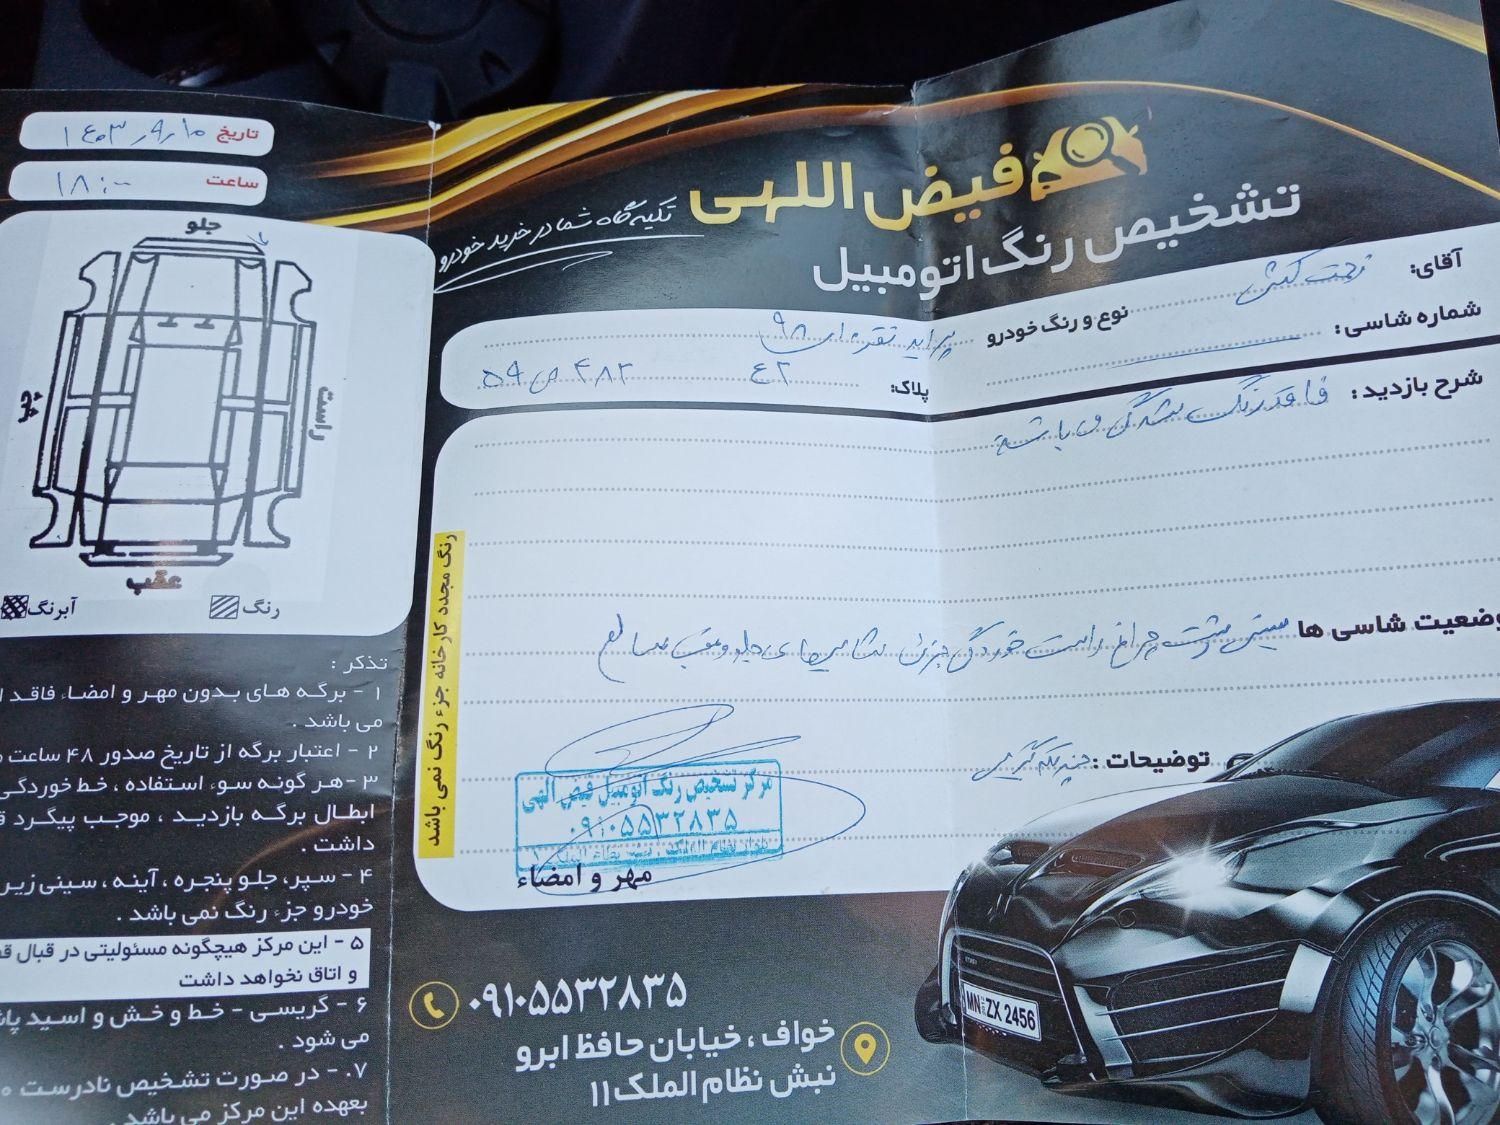 فیض اللهی
تشخیص رنگ اتومبیل
تکیه گاه شما در خرید خودرو
تاریخ ۱۴۰۳/۹/۱۰
ساعت ۱۸:۰۰
آقای: زحمت کش
نوع و رنگ خودرو پراید نقره ای ۹۸
شماره شاسی:
پلاک: ۴۲ ۴۸۲ ص ۵۹
شرح بازدید: فاقد رنگ شدگی می باشد
وضعیت شاسی ها سینی پشت چراغ راست خوردگی جزئی شاسی های جلو و عقب سالم
توضیحات:
مرکز تشخیص رنگ اتومبیل فیض الهی
۰۹۱۰۵۵۳۲۸۳۵
مهر و امضاء
رنگ مجدد کارخانه جزء رنگ نمی باشد
جلو
چپ
راست
عقب
رنگ
آبرنگ
تذکر:
۱ - برگه های بدون مهر و امضاء فاقد
می باشد.
۲ - اعتبار برگه از تاریخ صدور ۴۸ ساعت
۳ - هر گونه سوء استفاده، خط خوردگی
ابطال برگه بازدید، موجب پیگرد
داشت.
۴ - سپر، جلو پنجره، آینه، سینی زیر
خودرو جزء رنگ نمی باشد.
۵ - این مرکز هیچگونه مسئولیتی در قبال
و اتاق نخواهد داشت
۶ - گریسی - خط و خش و اسید
می شود.
۷. - در صورت تشخیص نادرست
بعهده این مرکز می باشد.
۰۹۱۰۵۵۳۲۸۳۵
خواف، خیابان حافظ ابرو
نبش نظام الملک ۱۱
MN ZX 2456